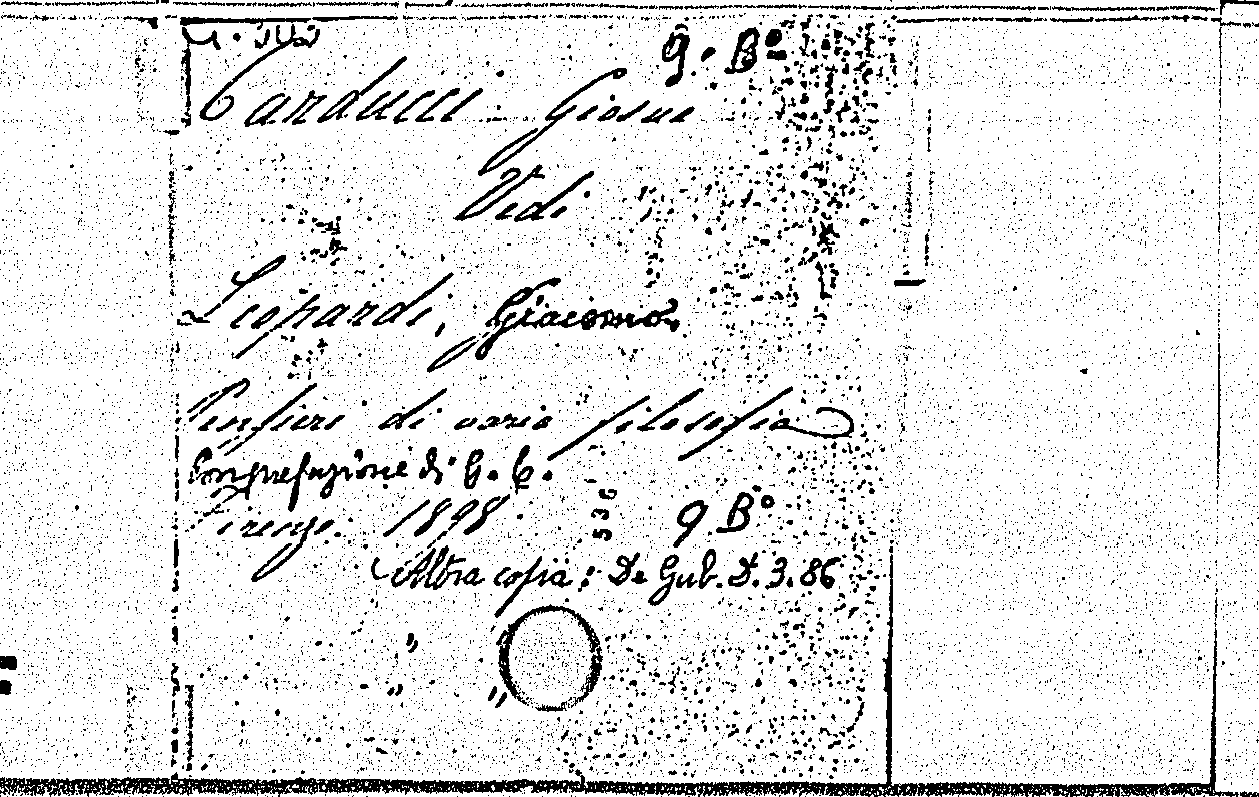 9. Bº
Carducci Giosue
Vedi
Leopardi, Giacomo.
Pensieri di varia filosofia
Con prefazione di G. C.
Firenze. 1898. 536 9 Bº
Altra copia: De Gub. D. 3. 86
" "
" "